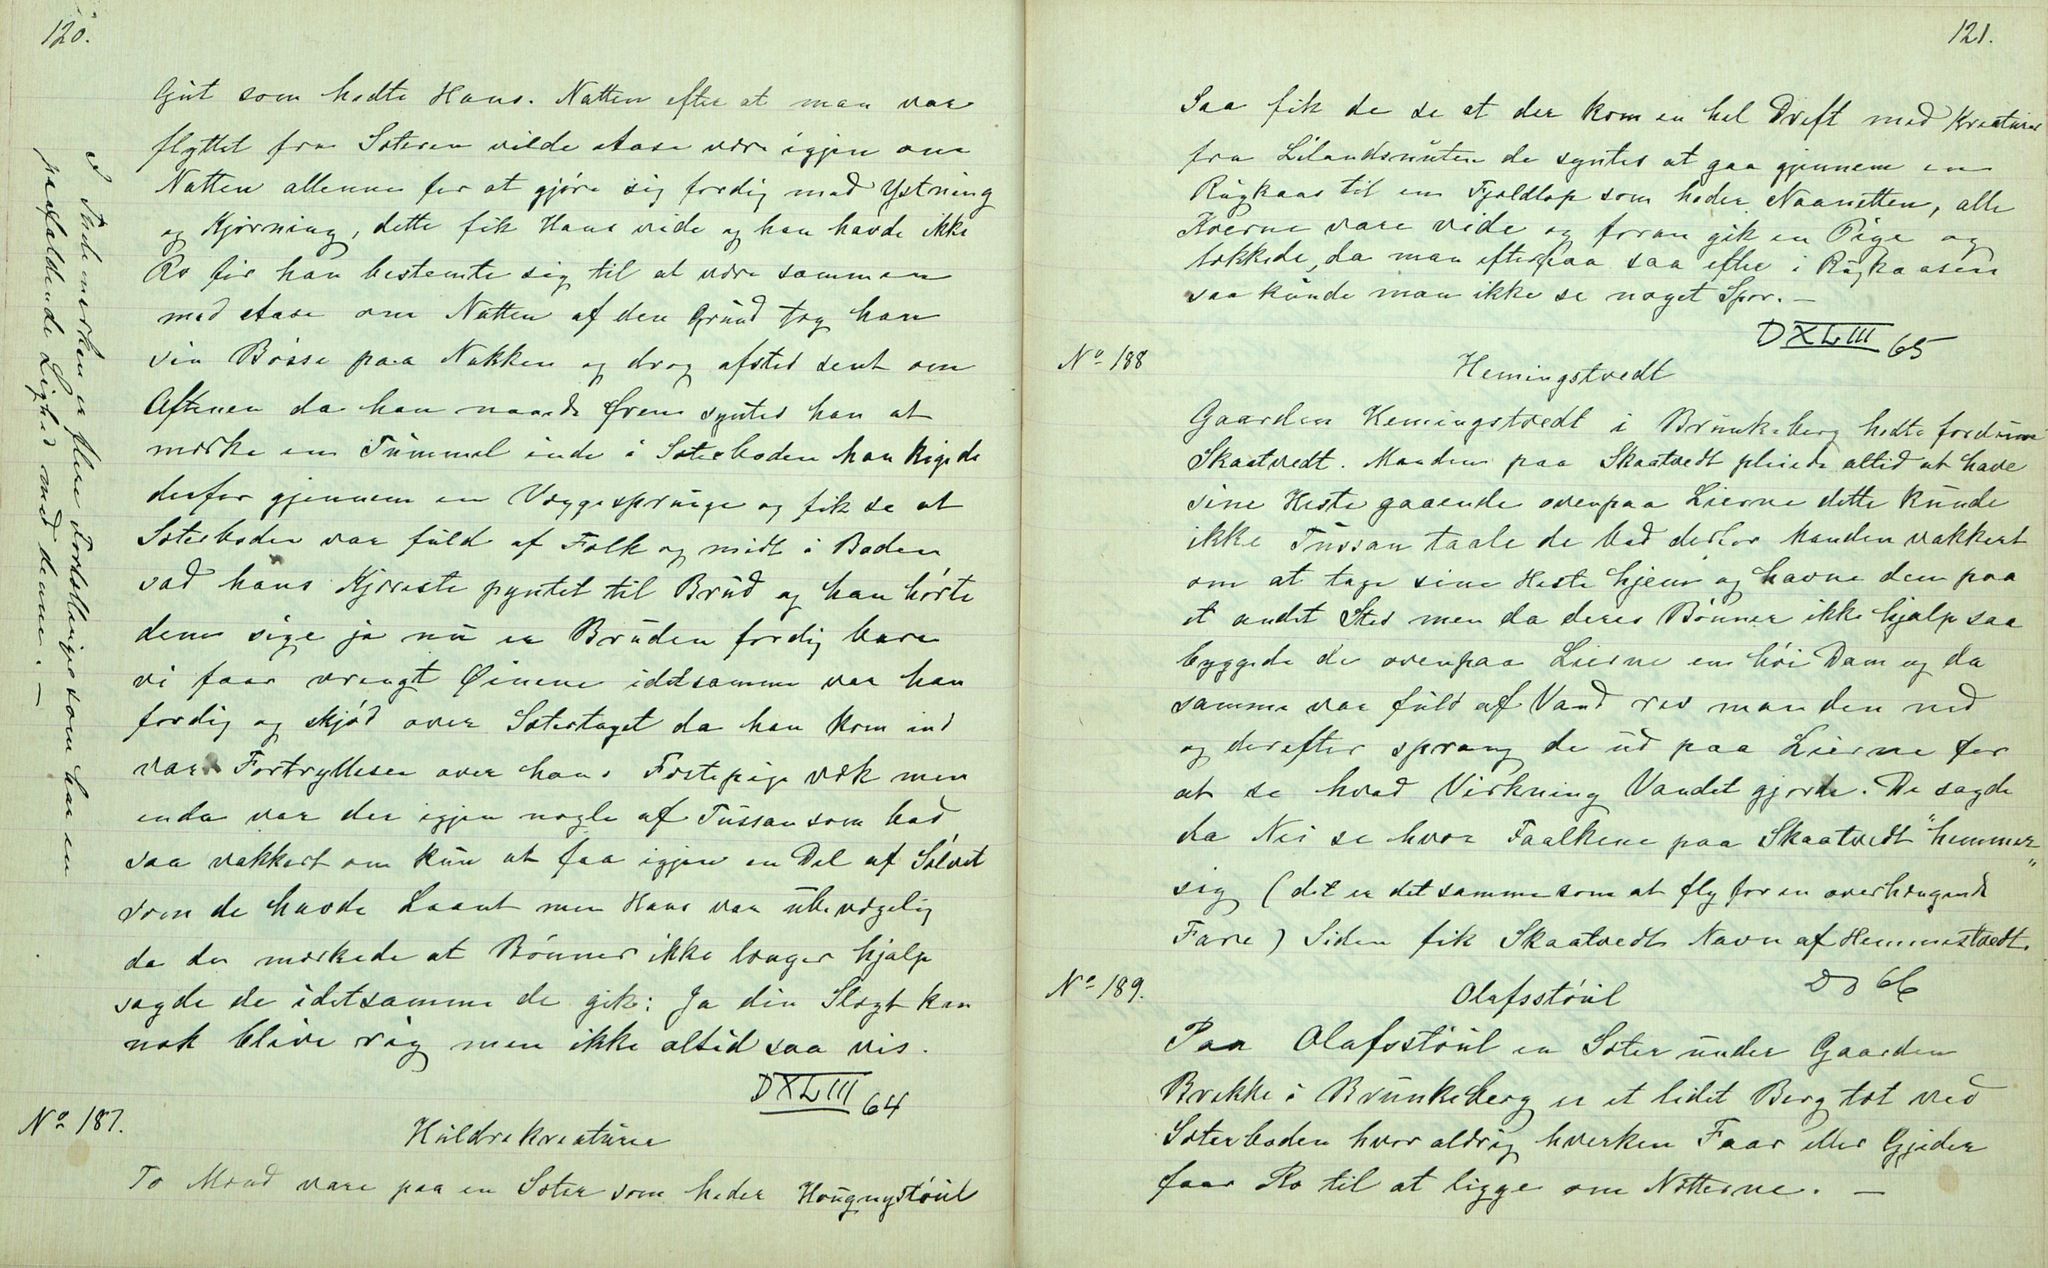 120.
Gut som hedte Hans. Natten efter at man var
flyttet fra Sæteren vilde Aase være igjen om
Natten allenne for at gjøre sig færdig med Ystning
og Kjørning, dette fik Hans vide og han havde ikke
Ro før han bestemte sig til at være sammen
med Aase om Natten af den Grund tog han
sin Bøsse paa Nakken og drog afsted sent om
Aftenen da han naaede frem syntes han at
mærke en Tummel inde i Sæterboden han kigede
derfor gjennem en Væggesprunge og fik se at
Sæterboden var fuld af Folk og midt i Boden
sad hans Kjæreste pyntet til Brud og han hørte
dem sige ja nu er Bruden færdig bare
vi faar vrængt Øinene idetsamme var han
færdig og skjød over Sætertaget da han kom ind
var Fortryllesen over hans Fæstepige væk men
enda var der igjen nogle af Tussan som bad
saa vakkert om kun at faa igjen en Del af Sølvet
som de havde Laant men Hans var ubevægelig
da de mærkede at Bønner ikke længer hjalp
sagde de idetsamme de gik: Ja din Slægt kan
nok blive rig men ikke altid saa vis.
DXLIII 64
I Thelemarken er flere Fortællinger som har en
paafaldende Lighed med denne. —
No 187.
Huldrekreature
To Mænd vare paa en Sæter som heder Hougnystøul
121.
Saa fik de se at der kom en hel Drift med Kreature
fra Lilandsnuten de syntes at gaa gjennem en
Rugkaas til en Fjeldtop som heder Naanetten, alle
Kverne vare vide og foran gik en Pige og
lokkede, da man efterpaa saa efter i Rugkaasen
saa kunde man ikke se noget Spor. —
DXLIII 65
No 188
Hemingstvedt
Gaarden Hemingstvedt i Brunkeberg hedte fordum
Skaatvedt. Manden paa Skaatvedt pleiede altid at have
sine Heste gaaende ovenpaa Lierne dette kunde
ikke Tussan taale de bad derfor Manden vakkert
om at tage sine Heste hjem og havne dem paa
et andet Sted men da deres Bønner ikke hjalp saa
byggede de ovenpaa Lierne en høi Dam og da
samme var fuld af Vand rev man den ned
og derefter sprang de ud paa Lierne for
at se hvad Virkning Vandet gjorde. De sagde
da Nei se hvor Faalkene paa Skaatvedt "hemmer
sig" (det er det samme som at fly for en overhængende
Fare) Siden fik Skaatvedt Navn af Hemmestvedt.
D D 66
No 189.
Olafsstøul
Paa Olafsstøul en Sæter under Gaarden
Brekke i Brunkeberg er et lidet Berg tæt ved
Sæterboden hvor aldrig hverken Faar eller Gjeder
faar Ro til at ligge om Nætterne. —